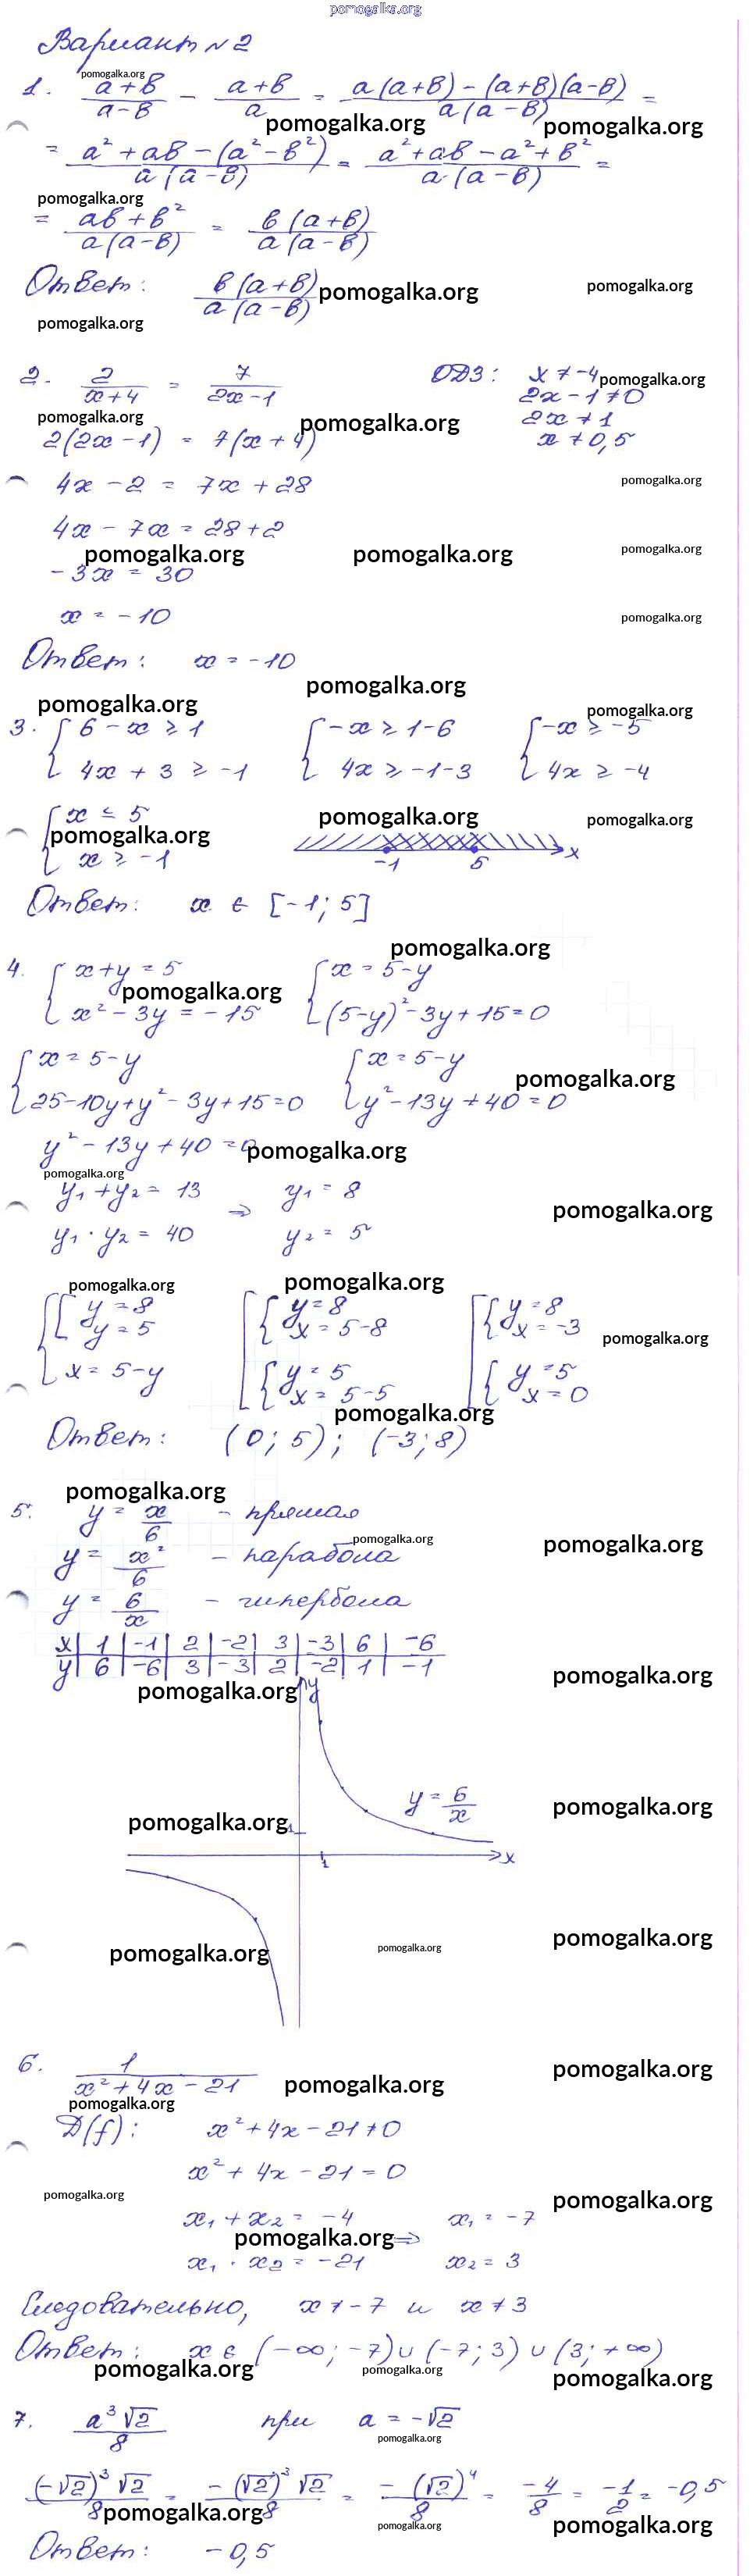 pomogalka.org
Вариант №2
1. (a+b)/(a-b) - (a+b)/a = (a(a+b) - (a+b)(a-b))/(a(a-b)) =
= (a²+ab-(a²-b²))/(a(a-b)) = (a²+ab-a²+b²)/(a·(a-b)) =
= (ab+b²)/(a(a-b)) = (b(a+b))/(a(a-b))
Ответ: (b(a+b))/(a(a-b))
2. 2/(x+4) = 7/(2x-1) ОДЗ: x≠-4
2x-1≠0
2(2x-1) = 7(x+4) 2x≠1
x≠0,5
4x-2 = 7x+28
4x-7x = 28+2
-3x = 30
x = -10
Ответ: x = -10
3. { 6-x ≥ 1 { -x ≥ 1-6 { -x ≥ -5
4x+3 ≥ -1 4x ≥ -1-3 4x ≥ -4
{ x ≤ 5
x ≥ -1 -1 5 x
Ответ: x ∈ [-1; 5]
4. { x+y = 5 { x = 5-y
x²-3y = -15 (5-y)²-3y+15=0
{ x = 5-y { x = 5-y
25-10y+y²-3y+15=0 y²-13y+40=0
y²-13y+40=0
y₁+y₂ = 13 ⇒ y₁ = 8
y₁·y₂ = 40 y₂ = 5
{ [ y=8 [ { y=8 [ { y=8
y=5 x=5-8 x=-3
x=5-y { y=5 { y=5
x=5-5 x=0
Ответ: (0; 5); (-3; 8)
5. y = x/6 - прямая
y = x²/6 - парабола
y = 6/x - гипербола
x | 1 | -1 | 2 | -2 | 3 | -3 | 6 | -6
y | 6 | -6 | 3 | -3 | 2 | -2 | 1 | -1
y
y = 6/x
1
1 x
6. 1/(x²+4x-21)
D(f): x²+4x-21≠0
x²+4x-21=0
x₁+x₂ = -4 ⇒ x₁ = -7
x₁·x₂ = -21 x₂ = 3
Следовательно, x≠-7 и x≠3
Ответ: x ∈ (-∞; -7)∪(-7; 3)∪(3; +∞)
7. a³√2/8 при a = -√2
(-√2)³√2/8 = -(√2)³√2/8 = -(√2)⁴/8 = -4/8 = -1/2 = -0,5
Ответ: -0,5